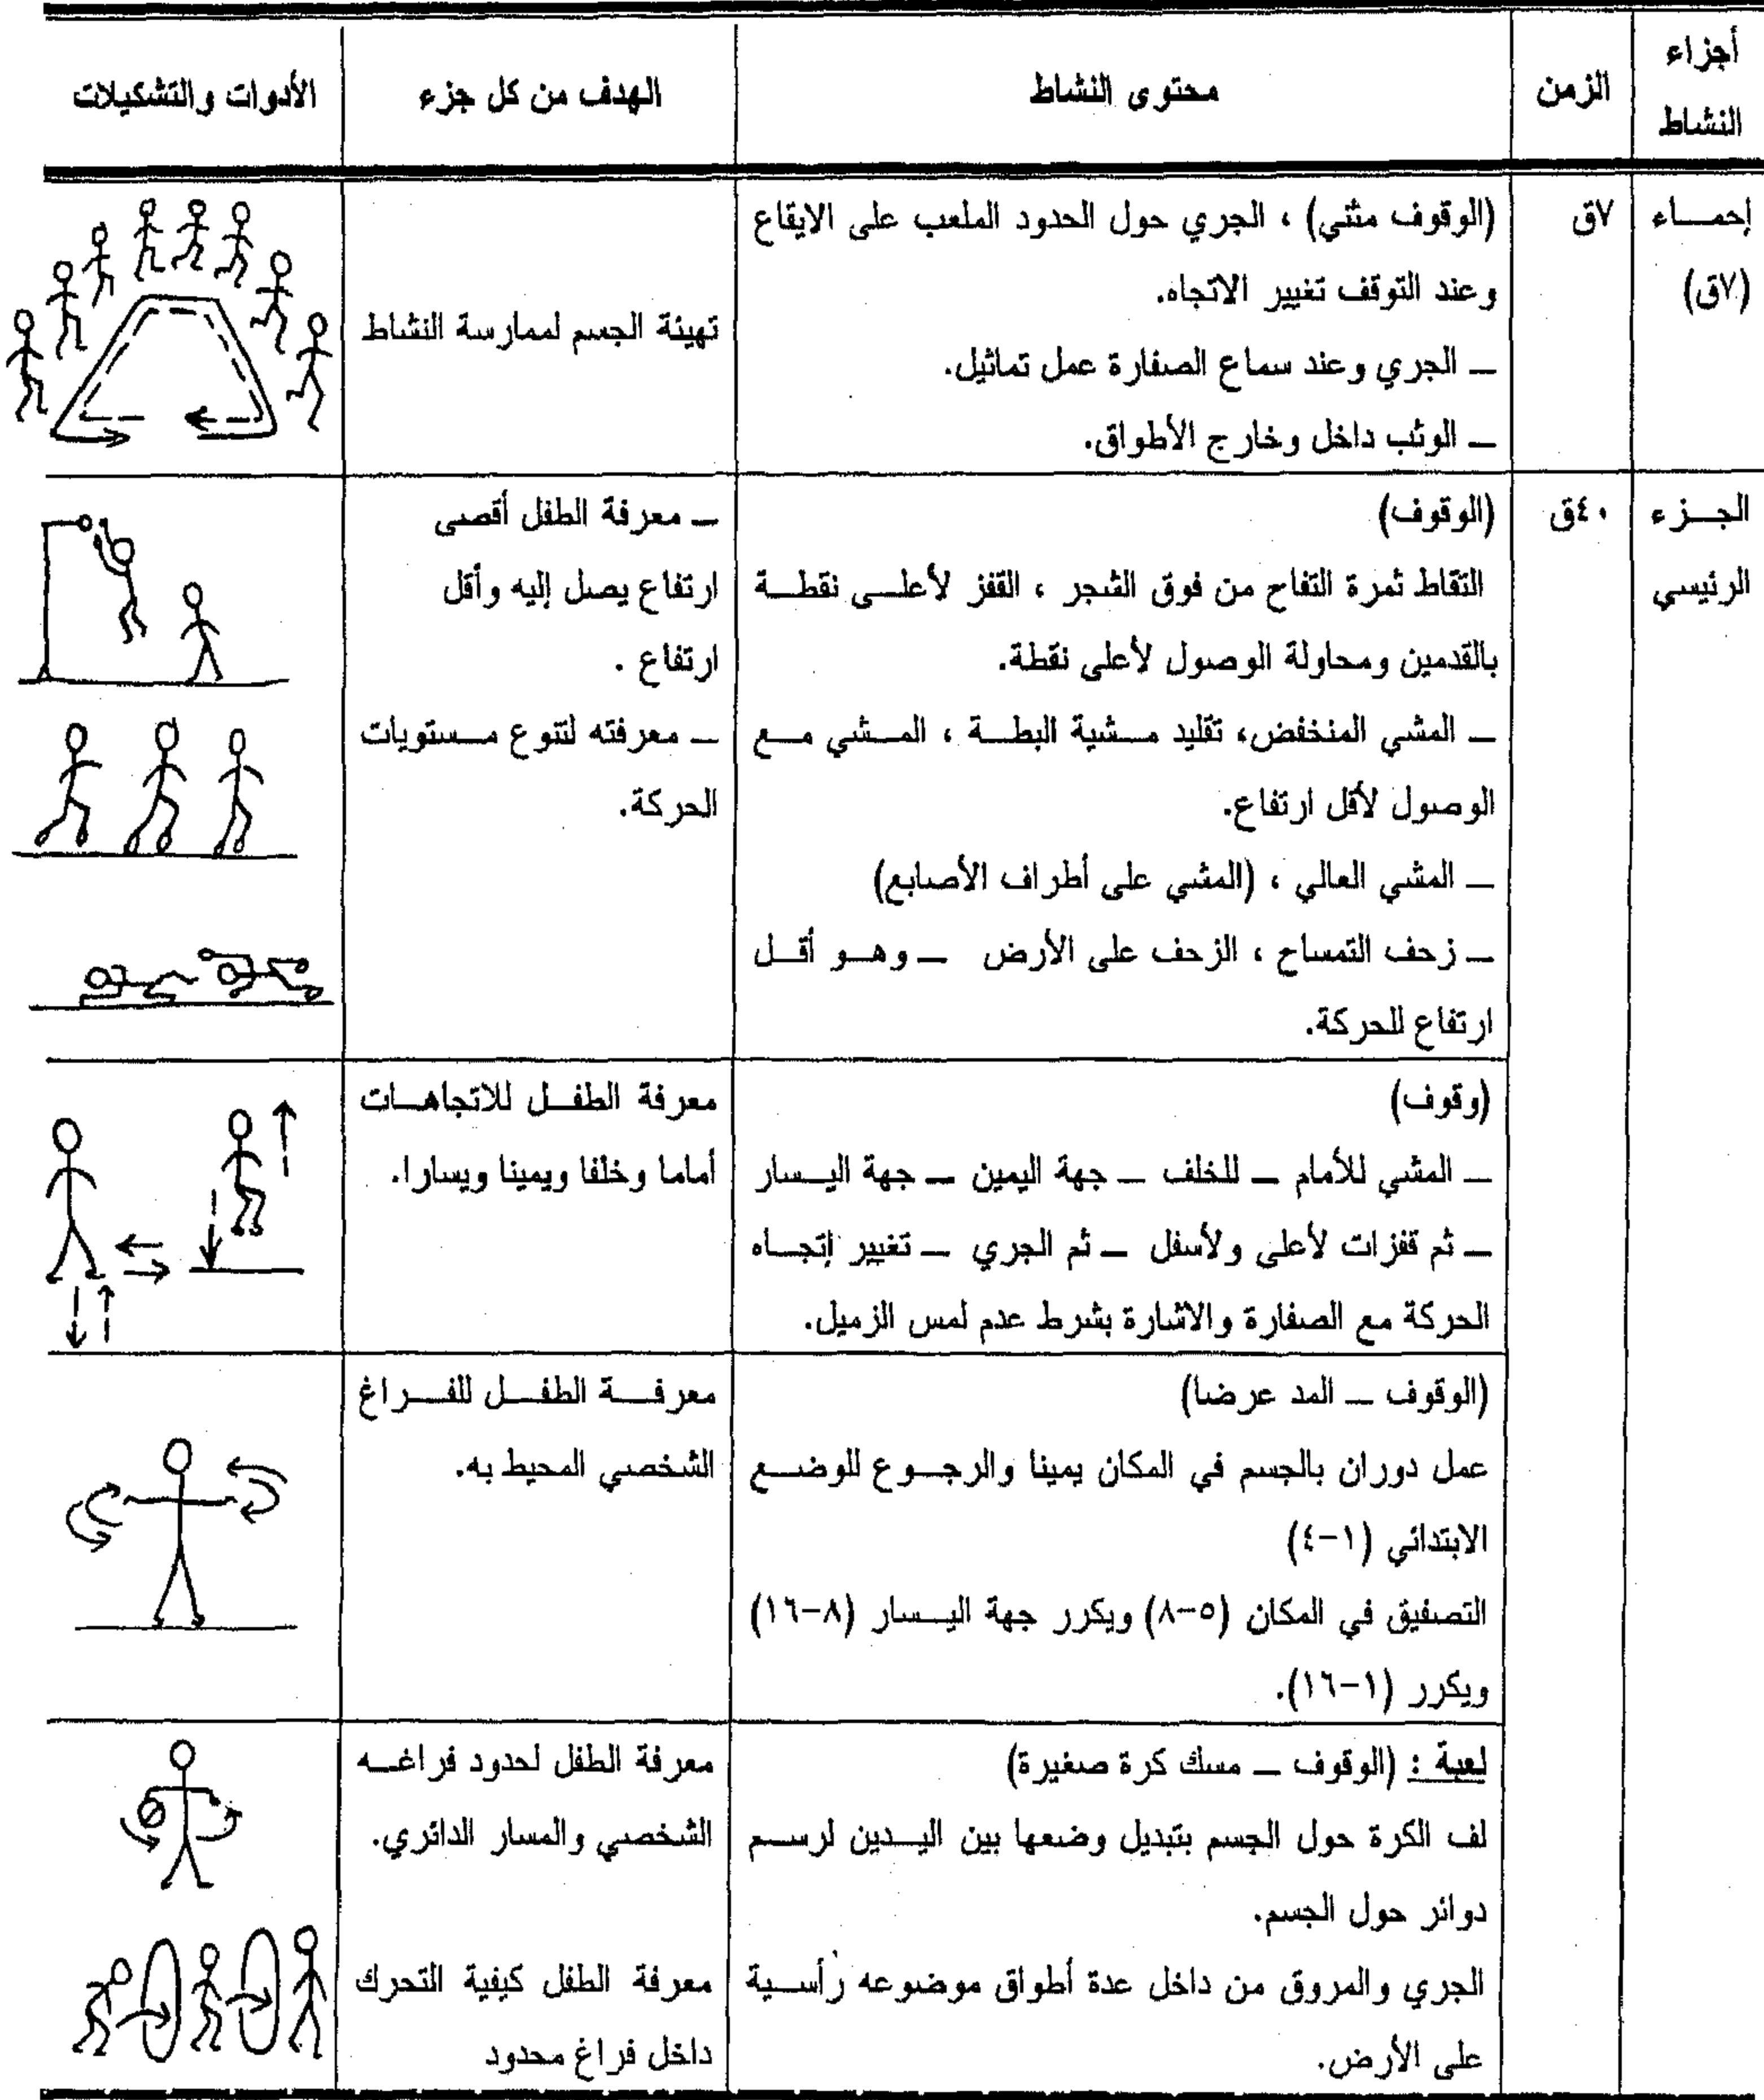 أجزاء
النشاط
الزمن
محتوى النشاط
الهدف من كل جزء
الأدوات والتشكيلات
إحمــاء
(٧ق)
٧ق
(الوقوف مثني) ، الجري حول الحدود الملعب على الايقاع
وعند التوقف تغيير الاتجاه.
ــ الجري وعند سماع الصفارة عمل تماثيل.
ــ الوثب داخل وخارج الأطواق.
تهيئة الجسم لممارسة النشاط
الجــزء
الرئيسي
٤٠ق
(الوقوف)
التقاط ثمرة التفاح من فوق الشجر ، القفز لأعلــى نقطــة
بالقدمين ومحاولة الوصول لأعلى نقطة.
ــ المشي المنخفض، تقليد مــشية البطــة ، المــشي مــع
الوصول لأقل ارتفاع.
ــ المشي العالي ، (المشي على أطراف الأصابع)
ــ زحف التمساح ، الزحف على الأرض ــ وهــو أقــل
ارتفاع للحركة.
ــ معرفة الطفل أقصى
ارتفاع يصل إليه وأقل
ارتفاع .
ــ معرفته لتنوع مــستويات
الحركة.
(وقوف)
ــ المشي للأمام ــ للخلف ــ جهة اليمين ــ جهة اليــسار
ــ ثم قفزات لأعلى ولأسفل ــ ثم الجري ــ تغيير إتجــاه
الحركة مع الصفارة والاشارة بشرط عدم لمس الزميل.
معرفة الطفــل للاتجاهــات
أماما وخلفا ويمينا ويسارا.
(الوقوف ــ المد عرضا)
عمل دوران بالجسم في المكان يمينا والرجــوع للوضــع
الابتدائي (١-٤)
التصفيق في المكان (٥-٨) ويكرر جهة اليــسار (٨-١٦)
ويكرر (١-١٦).
معرفــة الطفــل للفــراغ
الشخصي المحيط به.
لعبة : (الوقوف ــ مسك كرة صغيرة)
لف الكرة حول الجسم بتبديل وضعها بين اليــدين لرســم
دوائر حول الجسم.
الجري والمروق من داخل عدة أطواق موضوعه رأســية
على الأرض.
معرفة الطفل لحدود فراغــه
الشخصي والمسار الدائري.
معرفة الطفل كيفية التحرك
داخل فراغ محدود